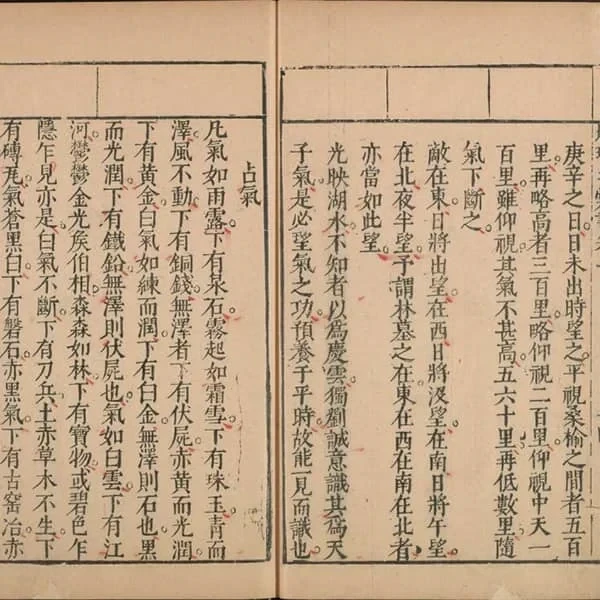 庚辛之日日未出時望之平視桑榆之間者五百
里再略高者三百里略仰視二百里仰視中天一
百里雖仰視其氣不甚高五六十里再低數里隨
氣下斷之
敵在東日將出望在西日將没望在南日將午望
在北夜半望予謂林墓之在東在西在南在北者
亦當如此望
光映湖水不知者以爲慶雲獨劉誠意識其爲天
子氣是必望氣之功預養于平時故能一見而識也
占氣
凡氣如雨露下有泉石霧起如霜雪下有珠玉青而
澤風不動下有銅錢無澤者下有伏屍赤黃而光潤
下有黃金白氣如練而潤下有白金無澤則石也黑
而光潤下有鐵鉛無澤則伏屍也氣如白雲下有江
河鬱鬱金光矦伯相森森如林下有寳物或碧色乍
隱乍見亦是白氣不斷下有刀兵土赤草木不生下
有磚瓦氣蒼黑白下有磐石赤黑氣下有古窑冶亦